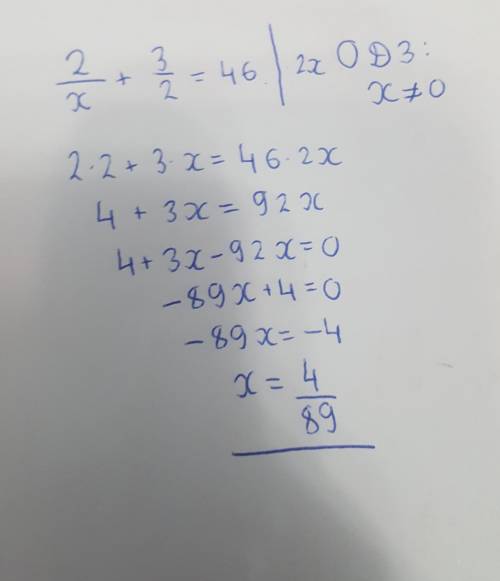 2/x + 3/2 = 46. | 2x ОДЗ:
x ≠ 0
2·2 + 3·x = 46·2x
4 + 3x = 92x
4 + 3x - 92x = 0
-89x + 4 = 0
-89x = -4
x = 4/89